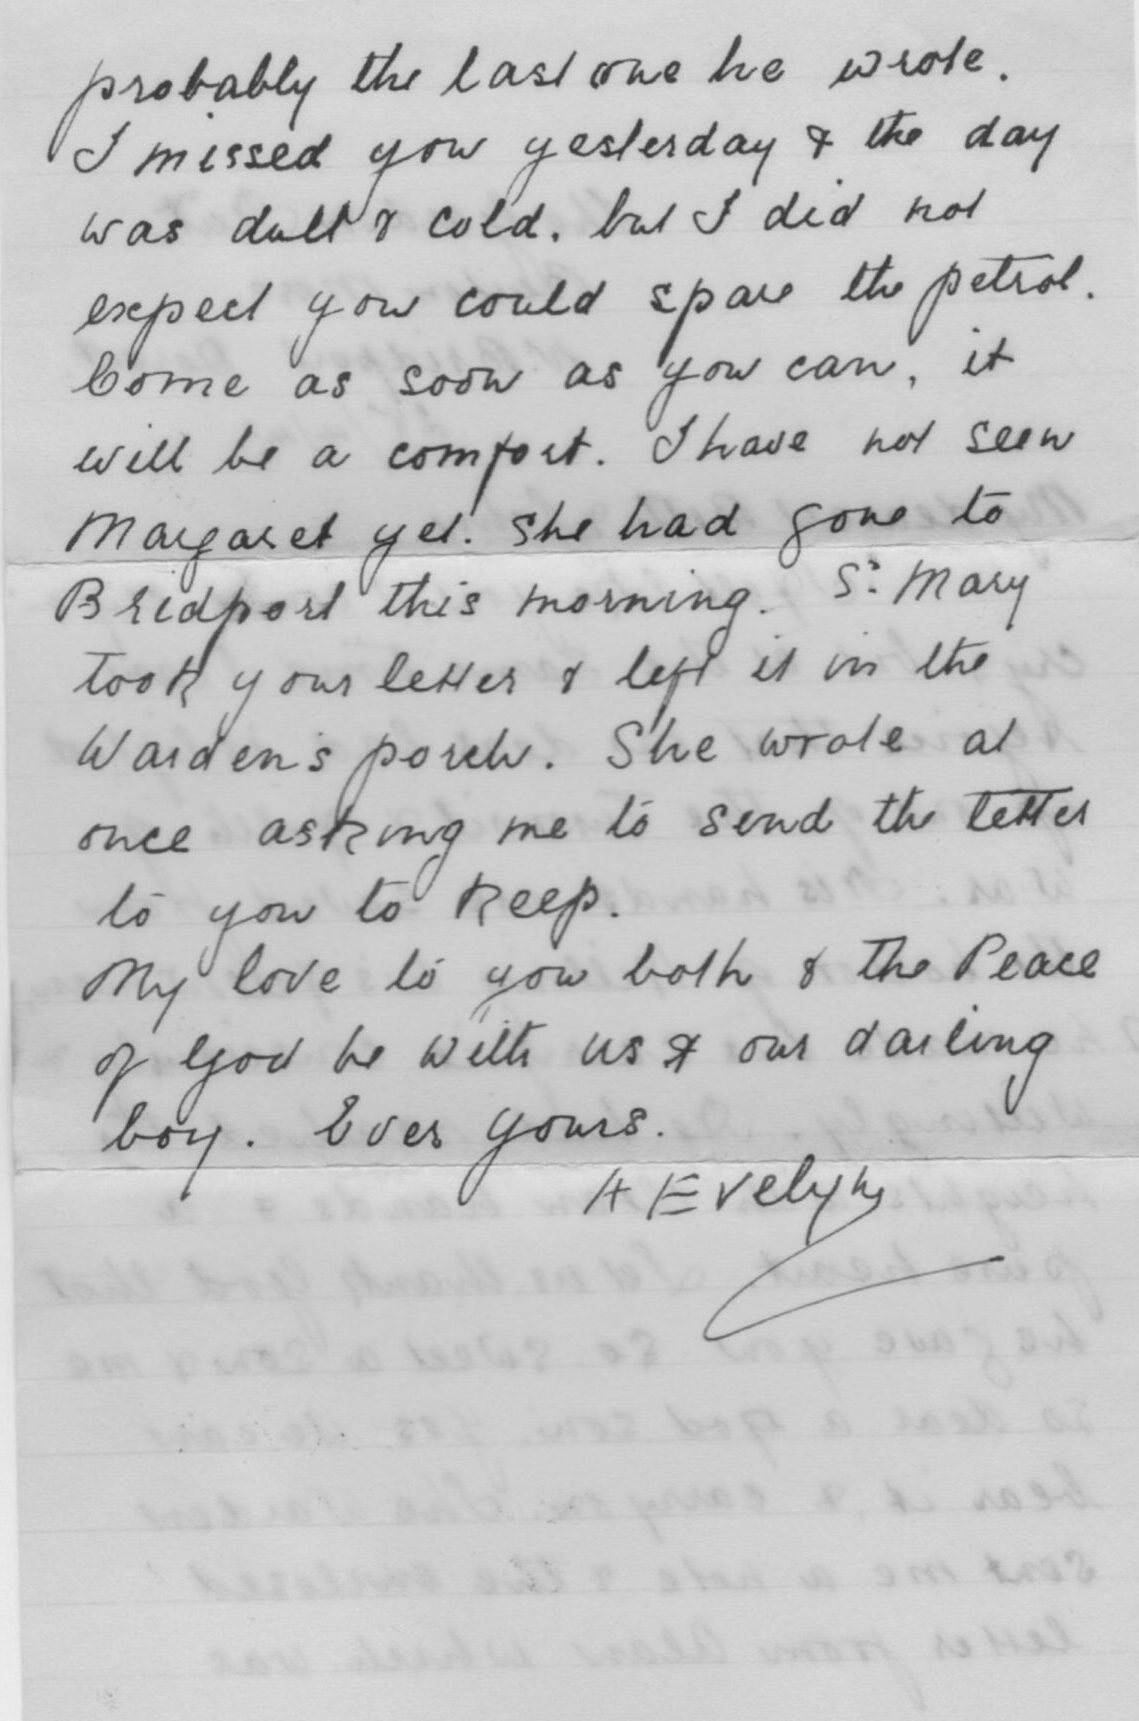 probably the last one he wrote.
I missed you yesterday & the day
was dull & cold. but I did not
expect you could spare the petrol.
Come as soon as you can, it
will be a comfort. I have not seen
Margaret yet. She had gone to
Bridport this morning. Sr. Mary
took your letter & left it in the
Warden's porch. She wrote at
once asking me to send the letter
to you to keep.
My love to you both & the Peace
of God be with us & our darling
boy. Ever yours.
H Evelyn